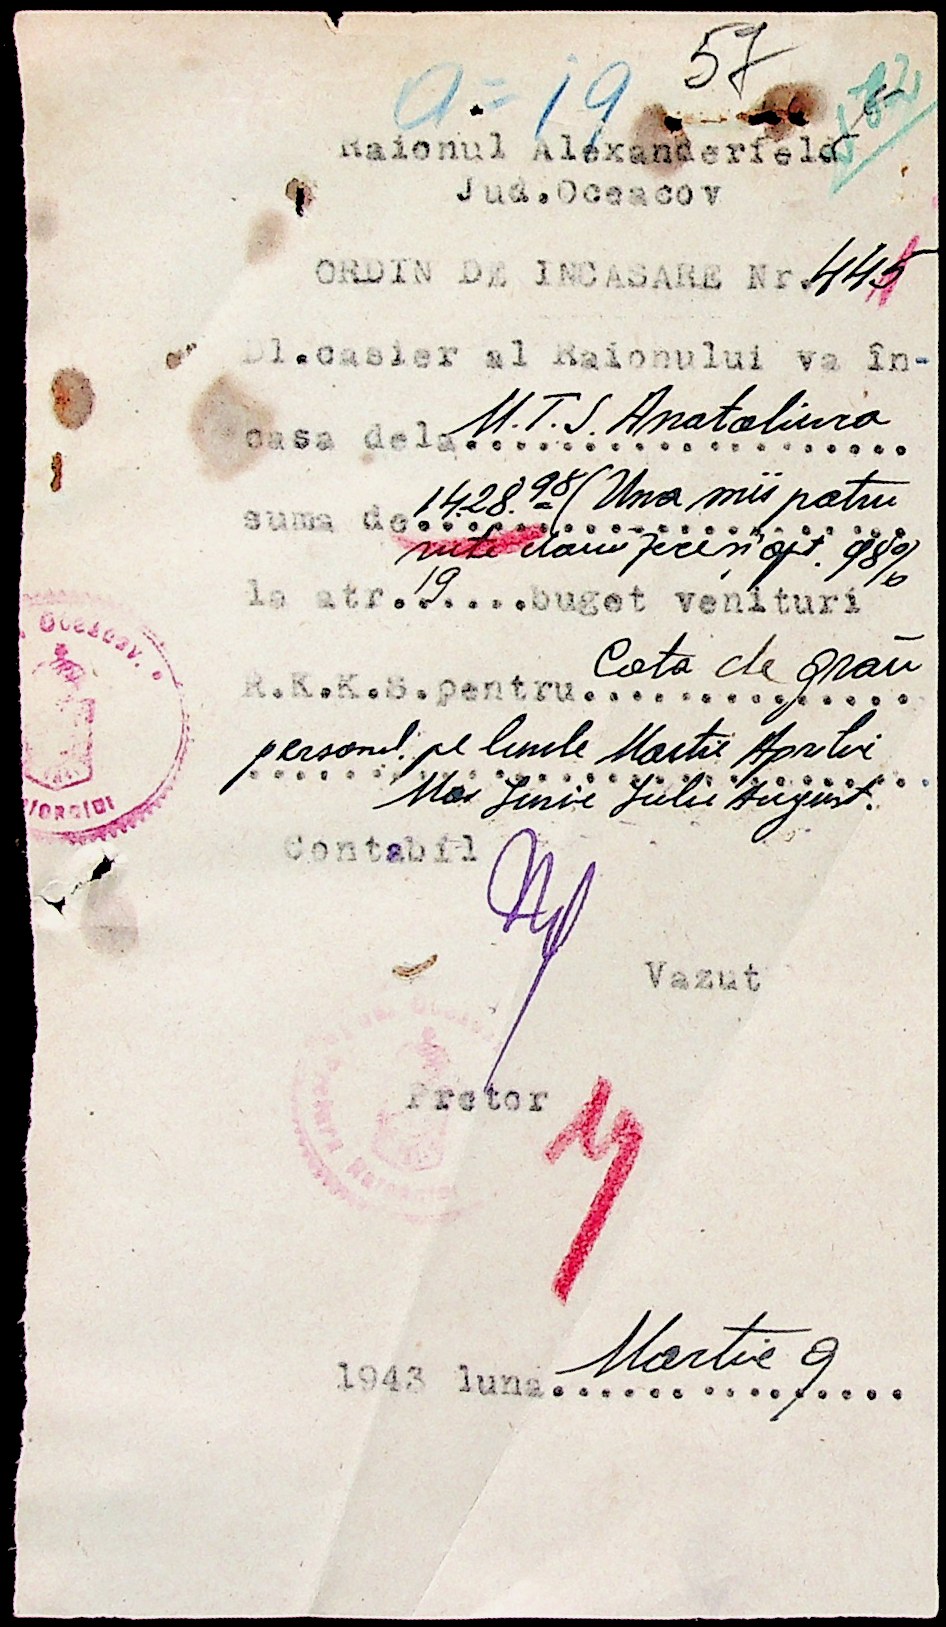 57
a=19
82
Raionul Alexanderfeld
Jud.Oceacov
ORDIN DE INCASARE Nr.445
Dl.casier al Raionului va în-
casa dela M.T.S.
suma de 1428.98 (Una mii patru
sute douăzeci și opt. 98%
la atr.19 buget venituri
R.K.K.S.pentru Cota de grâu
personal. pe lunile Martie Aprilie
Mai Iunie Iulie August.
Contabil
Vazut
Pretor
1943 luna Martie 9